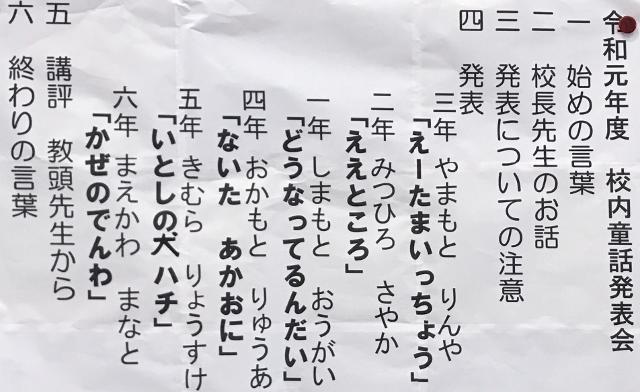 令和元年度 校内童話発表会
一 始めの言葉
二 校長先生のお話
三 発表についての注意
四 発表
三年 やまもと りんや
「えーたまいっちょう」
二年 みつひろ さやか
「ええところ」
一年 しまもと おうがい
「どうなってるんだい」
四年 おかもと りゅうあ
「ないた あかおに」
五年 きむら りょうすけ
「いとしの犬ハチ」
六年 まえかわ まなと
「かぜのでんわ」
五 講評 教頭先生から
六 終わりの言葉